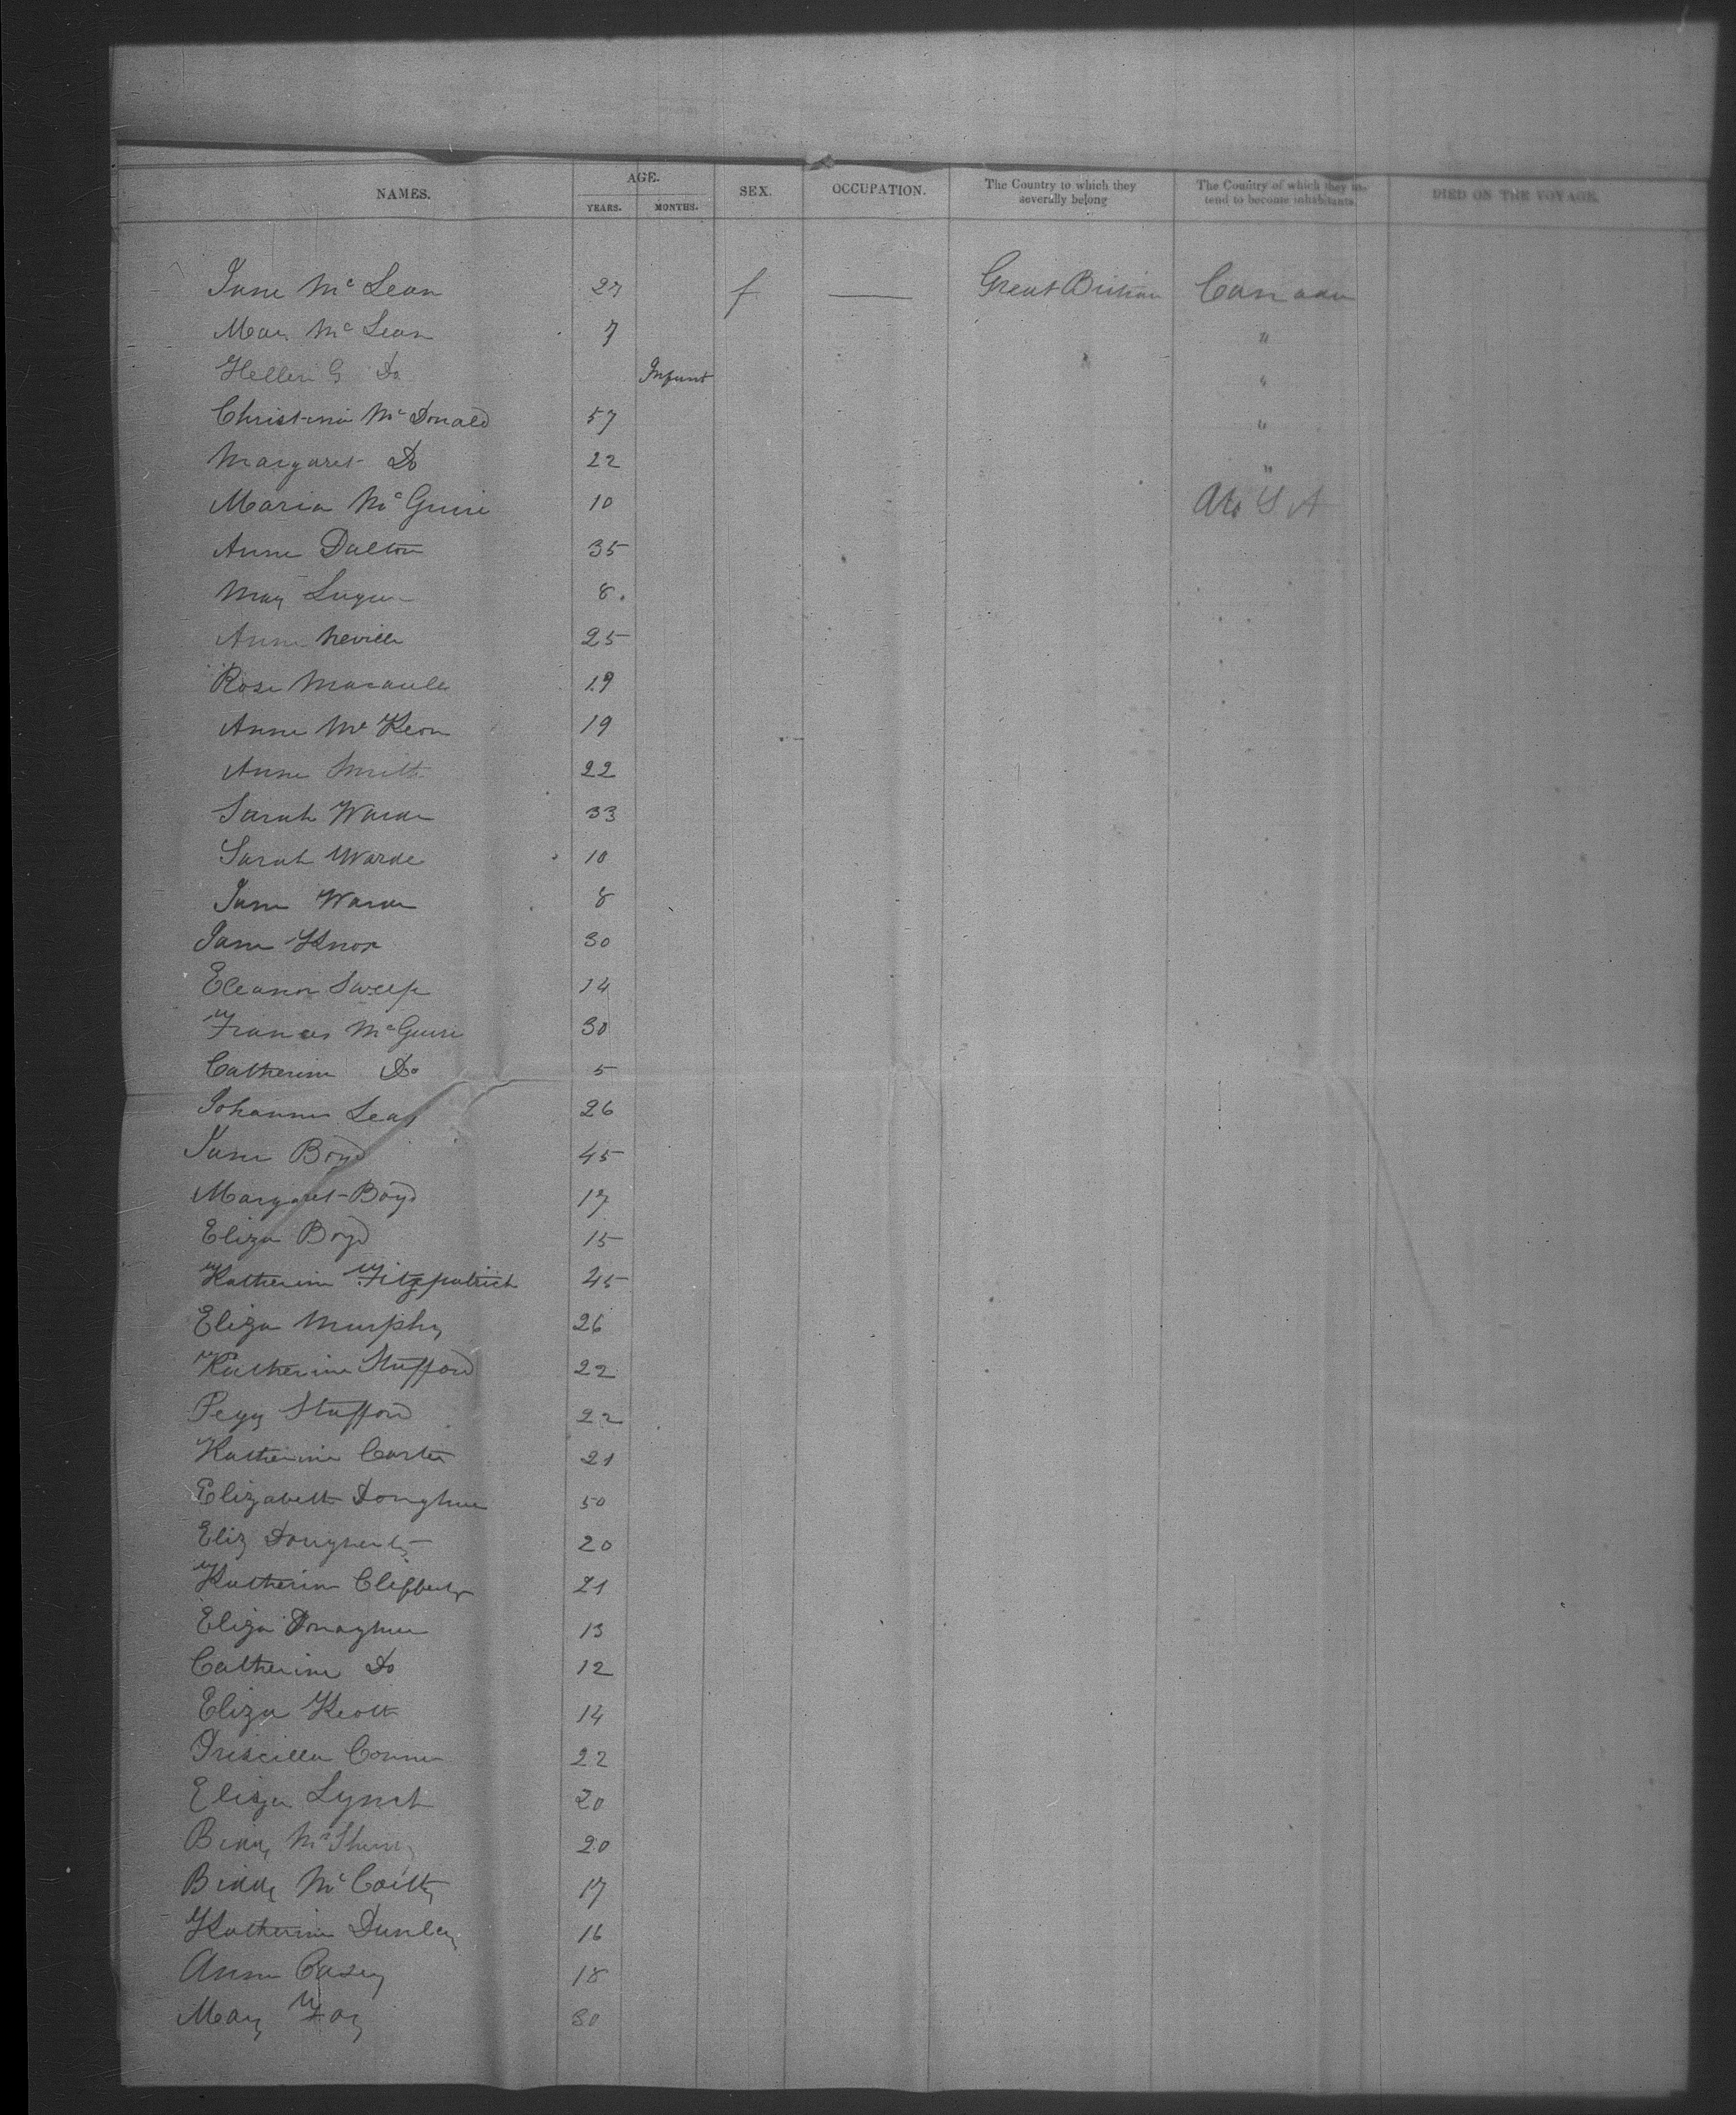 NAMES. AGE. SEX. OCCUPATION. The Country to which they severally belong The Country of which they intend to become inhabitants. DIED ON THE VOYAGE.
YEARS. MONTHS.
Jane Mc Lean 27 f Great Britian Canada
Mary Mc Lean 7 "
Hellen G Do Infant "
Christina Mc Donald 57 "
Margaret Do 22 "
Maria Mc Guire 10 U S A
Anne Dalton 35
Mary 8
Anne Neville 25
Rose Macaule 19
Anne Mc Keon 19
Anne Smith 22
Sarah Warde 33
Sarah Warde 10
Jane Warde 8
Jane Knox 30
Eleanor 14
Frances Mc Guire 30
Catherine Do 5
Johanna Leary 26
Jane Boyd 45
Margaret Boyd 17
Eliza Boyd 15
Katherine Fitzpatrick 45
Eliza Murphy 26
Katherine Stafford 22
Pegy Stafford 22
Katherine Carter 21
Elizabeth Donghue 50
Eliz Dougherty 20
Katherine 21
Eliza Donaghue 13
Catherine Do 12
Eliza Keott 14
Priscilla Connor 22
Eliza Lynch 20
Biddy 20
Biddy Mc 17
Katherine Dunley 16
Anne Casey 18
Mary Foy 30